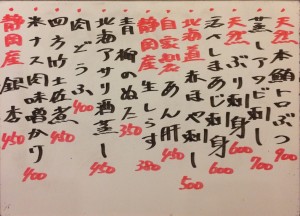 天然 本鮪トロぶつ 900
蒸しアワビ刺し 700
天然 ぶり刺身 600
活〆あじ刺身 600
北海道 赤ほや刺し 500
自家製 あん肝 450
静岡産 生しらす 380
青柳のぬた 350
北海アサリ酒蒸し
肉どうふ 400
四方竹土佐煮 450
水ナス肉味噌かけ 400
静岡産 銀杏 450